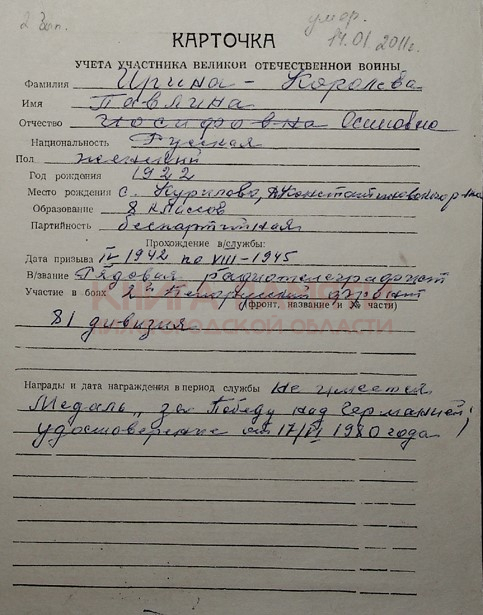 2 Зап.
умер.
14.01.2011г.
КАРТОЧКА
УЧЕТА УЧАСТНИКА ВЕЛИКОЙ ОТЕЧЕСТВЕННОЙ ВОЙНЫ
Фамилия Иргина - Королева
Имя Павлина
Отчество Иосифовна Осиповна
Национальность Русская
Пол женский
Год рождения 1922
Место рождения с. Курилово, Д.Константиновского р-на
Образование 8 классов
Партийность беспартийная
Прохождение в/службы:
Дата призыва IV 1942 по VIII-1945
В/звание Рядовая радиотелеграфист
Участие в боях 2й Белорусский фронт
(фронт, название и № части)
81 дивизия
КНИГА ПАМЯТИ
НИЖЕГОРОДСКОЙ ОБЛАСТИ
Награды и дата награждения в период службы Не имеется
Медаль „за Победу над Германией"
удостоверение от 17/VI 1980 года